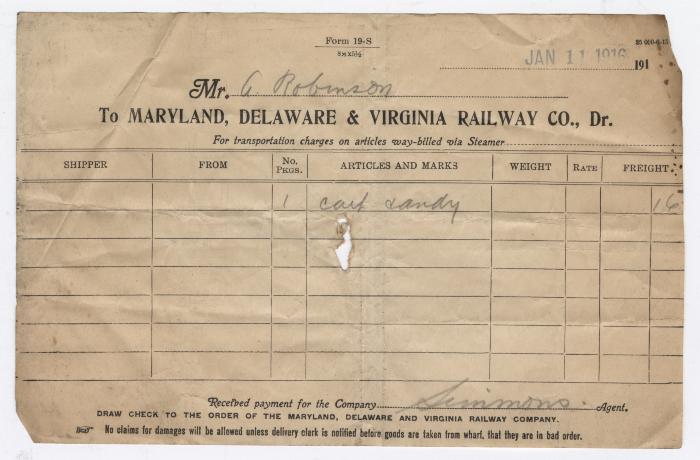 Form 19-S
8¼X5½
35 000-6-15
JAN 11 1916 191
Mr. A Robinson
To MARYLAND, DELAWARE & VIRGINIA RAILWAY CO., Dr.
For transportation charges on articles way-billed via Steamer
SHIPPER FROM No. PKGS. ARTICLES AND MARKS WEIGHT RATE FREIGHT.
1 candy 16
Received payment for the Company Simmons Agent.
DRAW CHECK TO THE ORDER OF THE MARYLAND, DELAWARE AND VIRGINIA RAILWAY COMPANY.
No claims for damages will be allowed unless delivery clerk is notified before goods are taken from wharf, that they are in bad order.